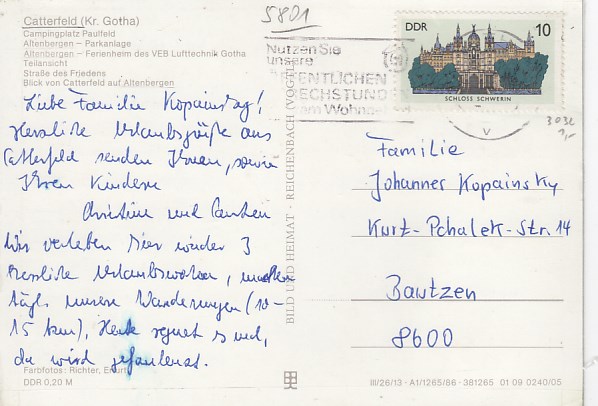 5801
Catterfeld (Kr. Gotha)
Campingplatz Paulfeld
Altenbergen – Parkanlage
Altenbergen – Ferienheim des VEB Lufttechnik Gotha
Teilansicht
Straße des Friedens
Blick von Catterfeld auf Altenbergen
Nutzen Sie
unsere
ÖFFENTLICHEN
am
DDR 10
SCHLOSS SCHWERIN
3032
1,-
Liebe Familie Kopainsky!
Herzliche Urlaubsgrüße aus
Catterfeld senden Ihnen, sowie
Ihren Kindern
Christine und
Wir verleben hier wieder 3
herzliche Urlaubswochen, machen
tägl. unsere Wanderungen (10-
15 km). Heute regnet es und,
da wird gefaulenzt.
Familie
Johannes Kopainsky
Kurt-Pchalek-Str. 14
Bautzen
8600
BILD UND HEIMAT · REICHENBACH (VOGTL)
Farbfotos: Richter, Erfurt
DDR 0,20 M
III/26/13 · A1/1265/86 · 381265 01 09 0240/05